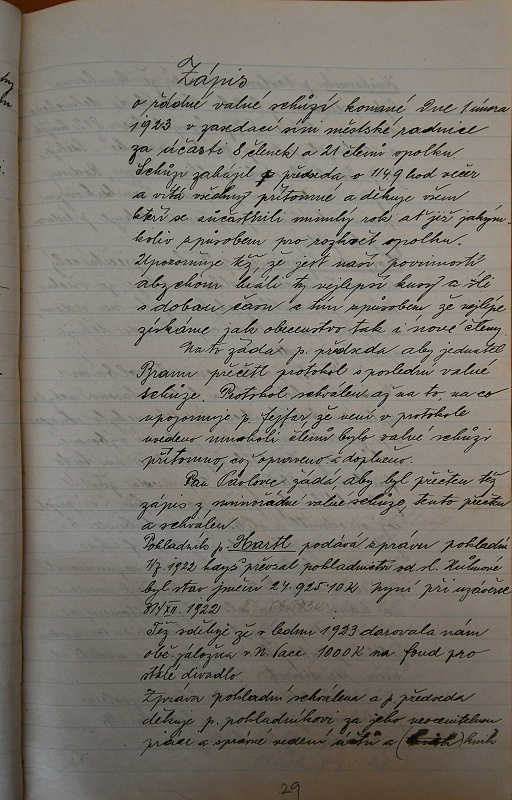 Zápis
o řádné valné schůzi konané Dne 1 února
1923 v zasedací síni městské radnice
za účasti 8 členek a 21 členů spolku.
Schůzi zahájil předseda o 1/4 9 hod večer
a vítá všechny přítomné a děkuje všem
kteří se súčastnili minulý rok ať již jakým-
koliv způsobem pro rozkvět spolku.
Upozorňuje též, že jest naší povinností
abychom hráli ty nejlepší kusy a šli
s dobou času a tím způsobem že nejlépe
získáme jak obecenstvo tak i nové členy.
Na to žádá p. předseda aby jednatel
Braun přečetl protokol s poslední valné
schůze. Protokol schválen až na to, na co
upozorňuje p. Fejfar že není v protokole
uvedeno mnoholi členů bylo valné schůzi
přítomno, což opraveno a doplněno.
Pan Pavlovec žádá aby byl přečten též
zápis z mimořádné valné schůze, tento přečten
a schválen
Pokladník p. Hartl podává zprávu pokladní
1/7. 1922 když převzal pokladnictví od sl.
byl stav jmění 24.925.10 K nyní při uzávěrce
31/XII. 1922
Též sděluje že v lednu 1923 darovala nám
obč. záložna v N. Pace 1000 K na fond pro
stálé divadlo.
Zpráva pokladní schválena a p. předseda
děkuje p. pokladníkovi za jeho neocenitelnou
práci a správné vedení účtů a knih
29